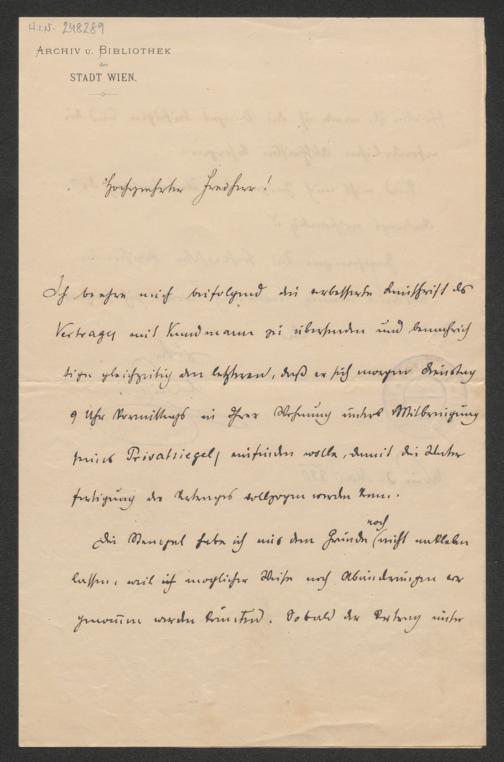 H.I.N. 248289
ARCHIV U. BIBLIOTHEK
der
STADT WIEN.
Hochgeehrter Freiherr!
Ich beehre mich beifolgend die verbesserte Reinschrift des
Vertrages mit Kundmann zu übersenden und benachrich
tige gleichzeitig den letzteren, daß er sich morgen Dienstag
9 Uhr Vormittags in Ihrer Wohnung unter Mitbringung
seines Privatsiegels einfinden wolle, damit die Unter
fertigung des Vertrages vollzogen werden kann.
Die Stempel habe ich aus dem Grunde noch nicht aufkleben
lassen, weil ich möglicher Weise noch Abänderungen vor
genommen werden könnten. Sobald der Vertrag unter